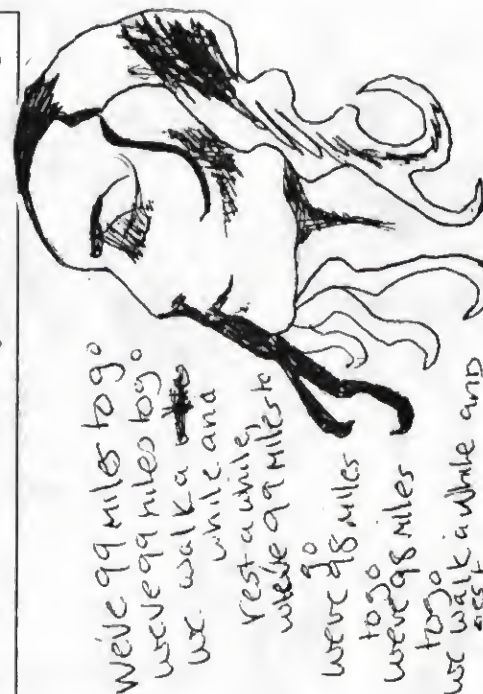 we've 99 Miles to go
we've 99 miles to go
we walk a
while and
rest a while,
we've 99 Miles to
go
we've 98 Miles
to go
we've 98 Miles
to go
we walk a while and
rest